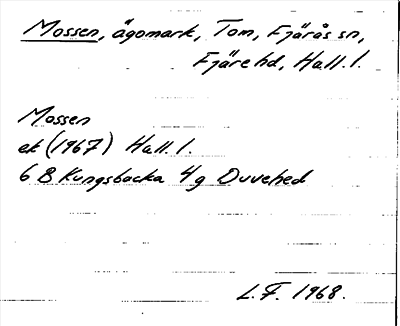 Mossen, ägomark, Tom, Fjärås sn,
Fjäre hd, Hall. l.
Mossen
ek (1967) Hall. l.
6 B Kungsbacka 4g Duvehed
L.F. 1968.